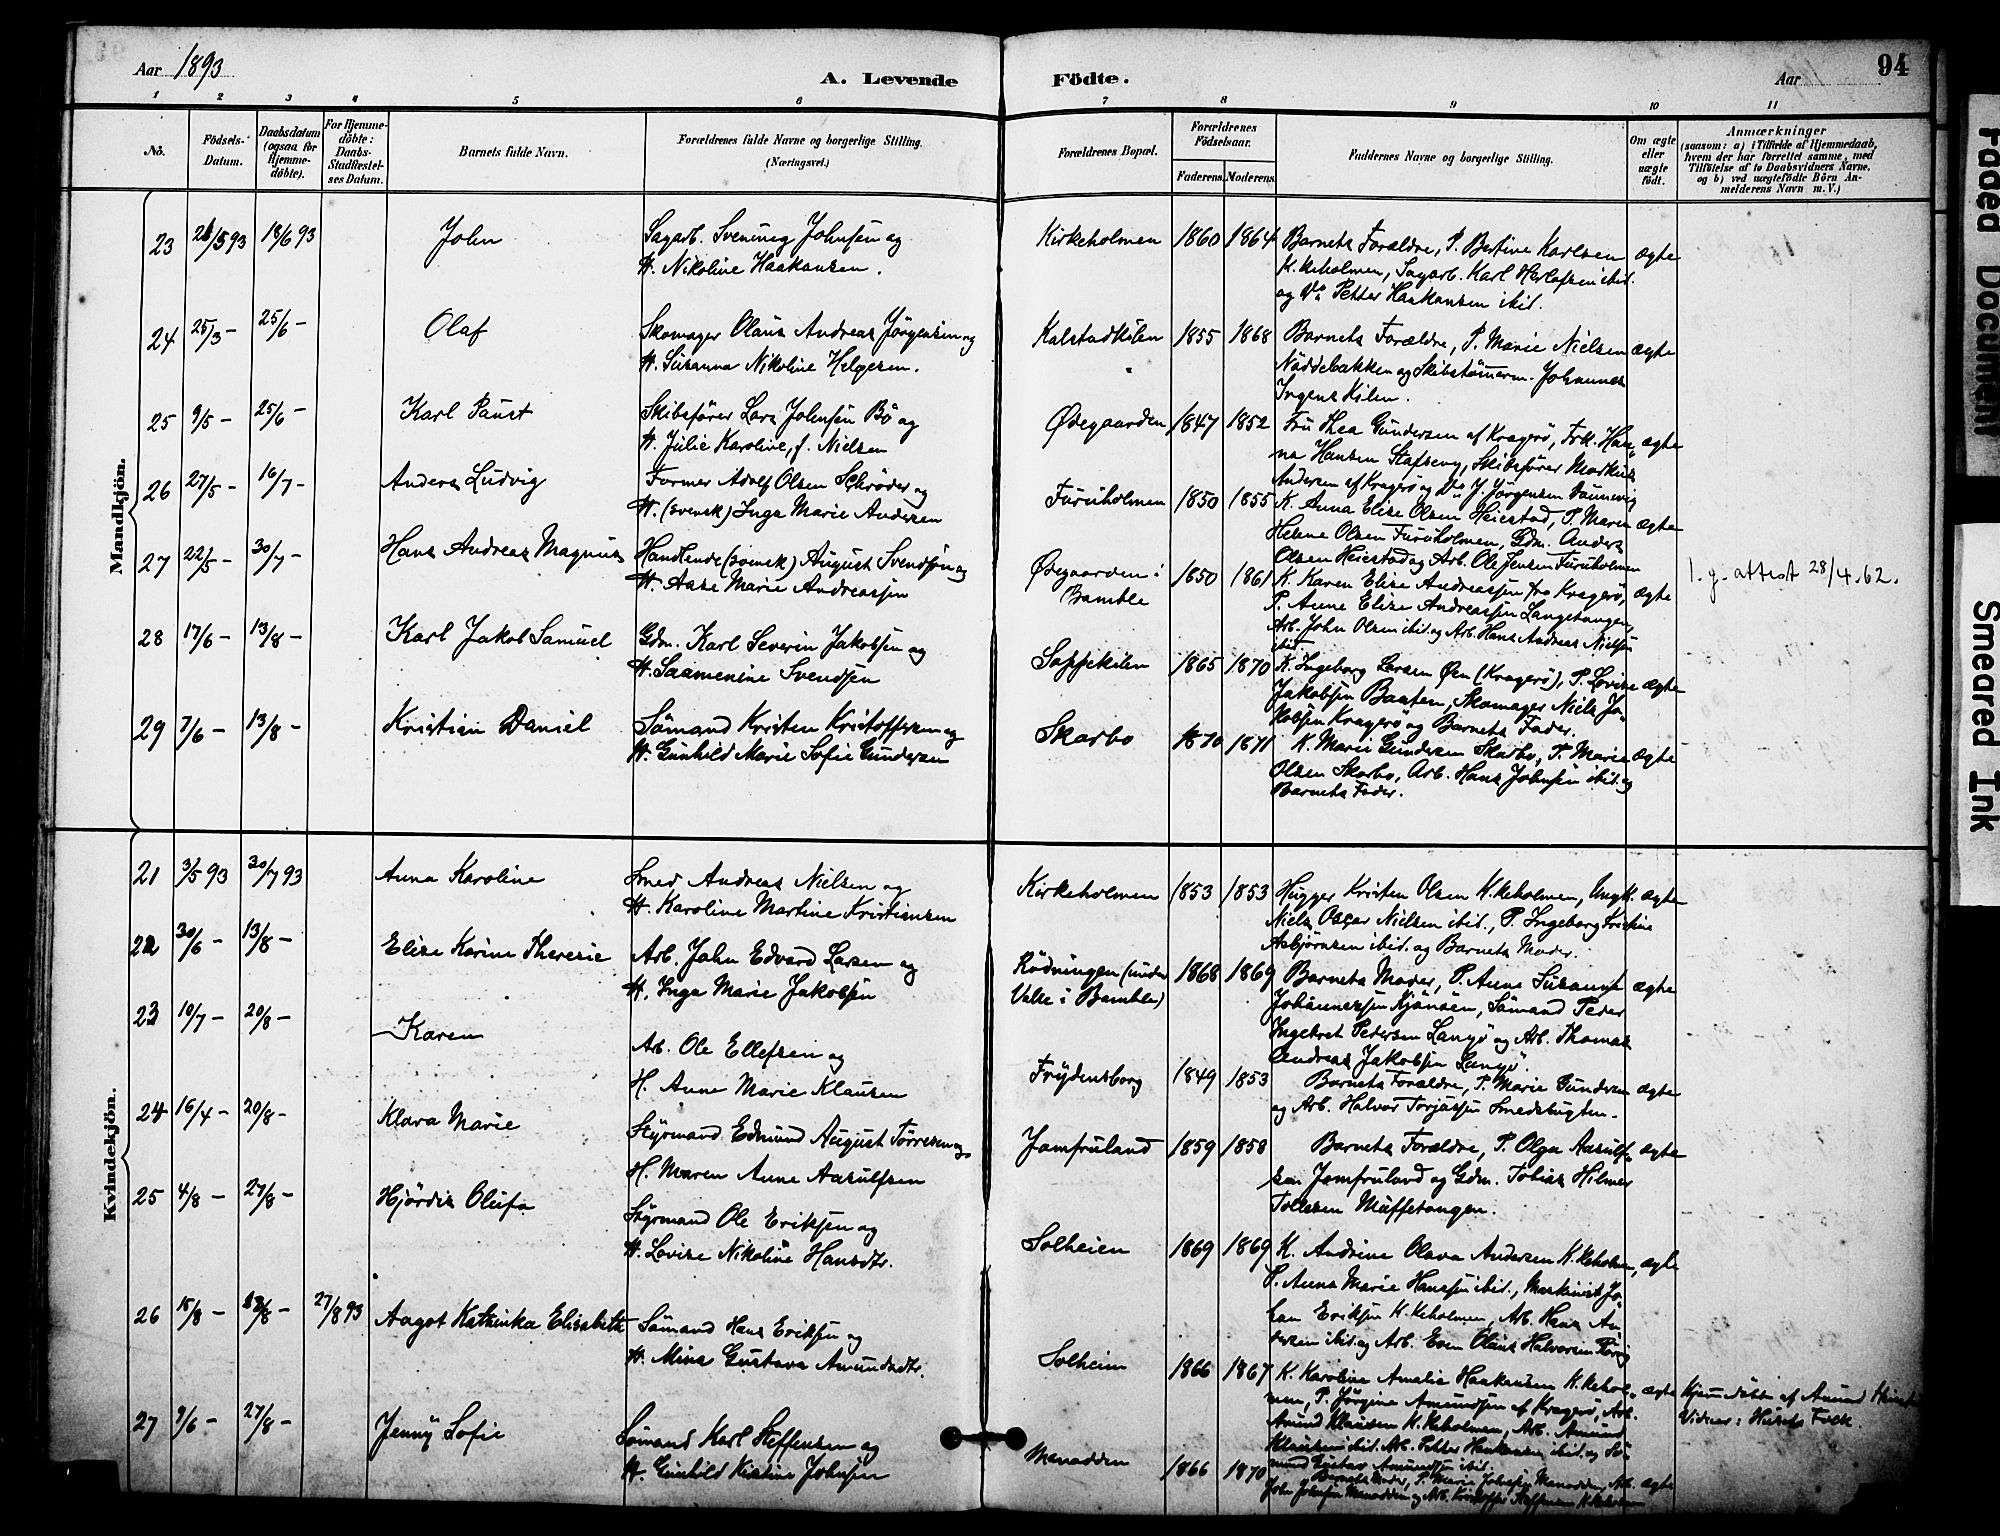 Aar 1893
A. Levende
Födte.
Aar
94
1 2 3 4 5 6 7 8 9 10 11
No.
Födsels-Datum.
Daabsdatum (ogsaa for Hjemme-döbte).
For Hjemme-döbte: Daabs-Stadfæstel-ses Datum.
Barnets fulde Navn.
Forældrenes fulde Navne og borgerlige Stilling.
(Næringsvei.)
Forældrenes Bopæl.
Forældrenes Födselsaar.
Faderens. Moderens.
Faddernes Navne og borgerlige Stilling.
Om ægte eller uægte födt.
Anmærkninger
(saasom: a) i Tilfælde af Hjemmedaab,
hvem der har forrettet samme, med
Tilföielse af to Daabsvidners Navne,
og b) ved uægtefödte Börn An-
melderens Navn m. V.)
Mandkjön.
23 21/5 93 18/6 93 John Sagarb. Svening Johnsen og
H. Nikoline Haakansen.
Kirkeholmen 1860 1864 Barnets Forældre, P. Bertine Karlsen ægte
K.keholmen, Sagarb. Karl Herlofsen ibid.
og Do Petter Haakansen ibid.
24 25/3 – 25/6 – Olaf Skomager Olaus Andreas Jørgensen og
H. Susanna Nikoline Helgesen.
Kalstadkilen 1855 1868 Barnets Forældre, P. Marie Nielsen ægte
Nöddebakken og Skibstömerm. Johannes
Ingens Kilen.
25 9/5 – 25/6 – Karl Paust Skibsfører Lars Johnsen Bö og
H. Julie Karoline, f. Nielsen
Østegaarden 1847 1852 Fru Thea Gundersen af Kragerø, Frk. Han- ægte
na Hansen Stafseng, Skibsfører Markus
Andersen af Kragerø og Do J. Jørgensen
26 27/5 – 16/7 – Anders Ludvig Former Adolf Olsen Schrøder og
H. (svensk) Inga Marie Andersen
Furuholmen 1850 1855 K. Anna Elise Olsen Heiestad, P. Maren ægte
Helene Olsen Furuholmen, Gdm. Anders
Olsen Heiestad og Arb. Ole Jensen Furuholmen
27 22/5 – 30/7 – Hans Andreas Magnus Handlende (svensk) August Svendsen og
H. Aase Marie Andreassen
Østegaarden i
Bamble 1850 1861 K. Karen Elise Andreassen fra Kragerø, ægte
P. Anne Elise Andreassen Langetangen,
Arb. John Olsen ibid. og Arb. Hans Andreas Nielsen
ibid.
l. g. attest 28/4.62.
28 17/6 – 13/8 – Karl Jakob Samuel Gdm. Karl Severin Jakobsen og
H. Saamenine Svendsen
Soppekilen 1865 1870 K. Ingeborg Larsen Øen (Kragerø), P. Lovise ægte
Jakobsen Baaten, Skomager Niels Ja-
kobsen Kragerø og Barnets Fader.
29 7/6 – 13/8 – Kristian Daniel Sömand Kristen Kristoffersen og
H. Gunhild Marie Sofie Gundersen
Skarbo 1870 1871 K. Marie Gundersen Skarbo, P. Marie ægte
Olsen Skarbo, Arb. Hans Johnsen ibid. og
Barnets Fader.
Kvindekjön.
21 3/5 93 30/7 93 Anna Karoline Smed Andreas Nielsen og
H. Karoline Martine Kristiansen
Kirkeholmen 1853 1853 Hugger Kristen Olsen K.keholmen, Ungk. ægte
Niels Oscar Nielsen ibid., P. Ingeborg Kristine
Asbjørnsen ibid. og Barnets Moder.
22 30/6 – 13/8 – Elise Karine Theresie Arb. John Edvard Larsen og
H. Inga Marie Jakobsen
Rödningen (under
Valle i Bamble) 1868 1869 Barnets Moder, P. Anne Susanne ægte
Johannessen Kjønøen, Sömand Peder
Ingebret Pedersen Langø og Arb. Thomas
Andreas Jakobsen Langø.
23 10/7 – 20/8 – Karen Arb. Ole Ellefsen og
H. Anne Marie Klausen
Frydensborg 1849 1853 Barnets Forældre, P. Marie Gundersen ægte
og Arb. Halvor Torjussen Smedsbugten.
24 16/4 – 20/8 – Klara Marie Styrmand Edmund August Tørresen og
H. Maren Anne Aasulfsen
Jomfruland 1859 1858 Barnets Forældre, P. Olga Aasulf- ægte
sen Jomfruland og Gdm. Tobias Hilmer
Tollesen Muffetangen.
25 4/8 – 27/8 – Hjördis Olufa Styrmand Ole Eriksen og
H. Lovise Nikoline Hansdtr.
Solheien 1869 1869 K. Andrine Olava Andersen K.keholmen, ægte
P. Anna Marie Hanssen ibid., Maskinist Jo-
han Eriksen K.keholmen, Arb. Hans An-
dersen ibid. og Arb. Even Olaus Halvorsen
26 15/8 – 18/8 – 27/8 93 Aagot Kathinka Elisabeth Sömand Hans Eriksen og
H. Mina Gustava Amundsdtr.
Solheim 1866 1867 K. Karoline Amalie Haakansen K.kehol- ægte
men, P. Jørgine Amundsen af Kragerø, Arb.
Amund Klausen K.keholmen, Arb. Amund
Klausen ibid. Arb. Petter Haakansen ibid. og Sö-
mand Gustav Amundsen ibid.
Hjemmedøbt af Amund
Vidner: Husets Folk
27 9/6 – 27/8 – Jenny Sofie Sömand Karl Steffensen og
H. Gunhild Kristine Johnsen
Manodden 1866 1870 Barnets Moder, P. Marie Johnsen Manodden, Arb. ægte
John Johnsen Manodden og Arb. Kristoffer Steffensen K.keholmen
Faded Document
Smeared Ink